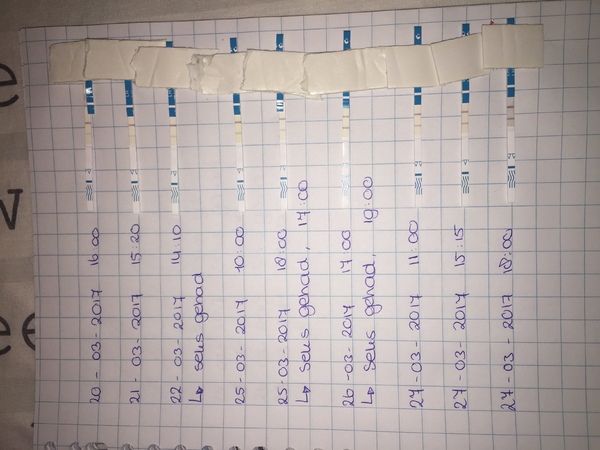 20-03-2017 16:00
21-03-2017 15:20
22-03-2017 14:10
↳ seks gehad
25-03-2017 10:00
25-03-2017 18:00
↳ seks gehad, 17:00
26-03-2017 17:00
↳ seks gehad, 19:00
27-03-2017 11:00
27-03-2017 15:15
27-03-2017 18:00